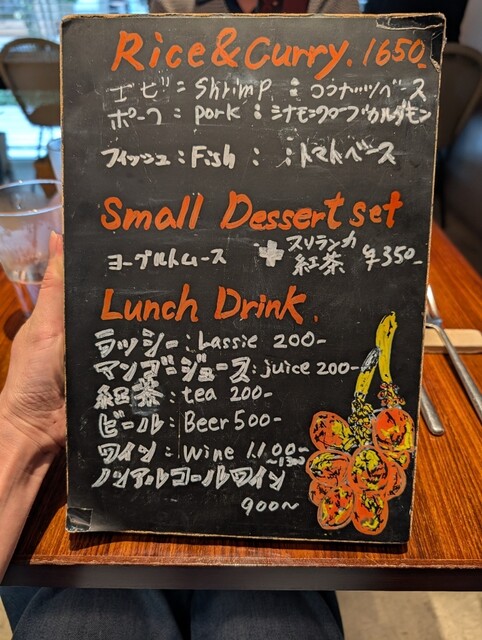 Rice&Curry. 1650-
エビ：shrimp：ココナッツベース
ポーク：pork：シナモンクローブカルダモン
フィッシュ：Fish：：トマトベース
Small Dessert set
ヨーグルトムース + スリランカ紅茶 ¥350-
Lunch Drink.
ラッシー：Lassie 200-
マンゴージュース：juice 200-
紅茶：tea 200-
ビール：Beer 500-
ワイン：wine 1100-
~1300
ノンアルコールワイン
900~